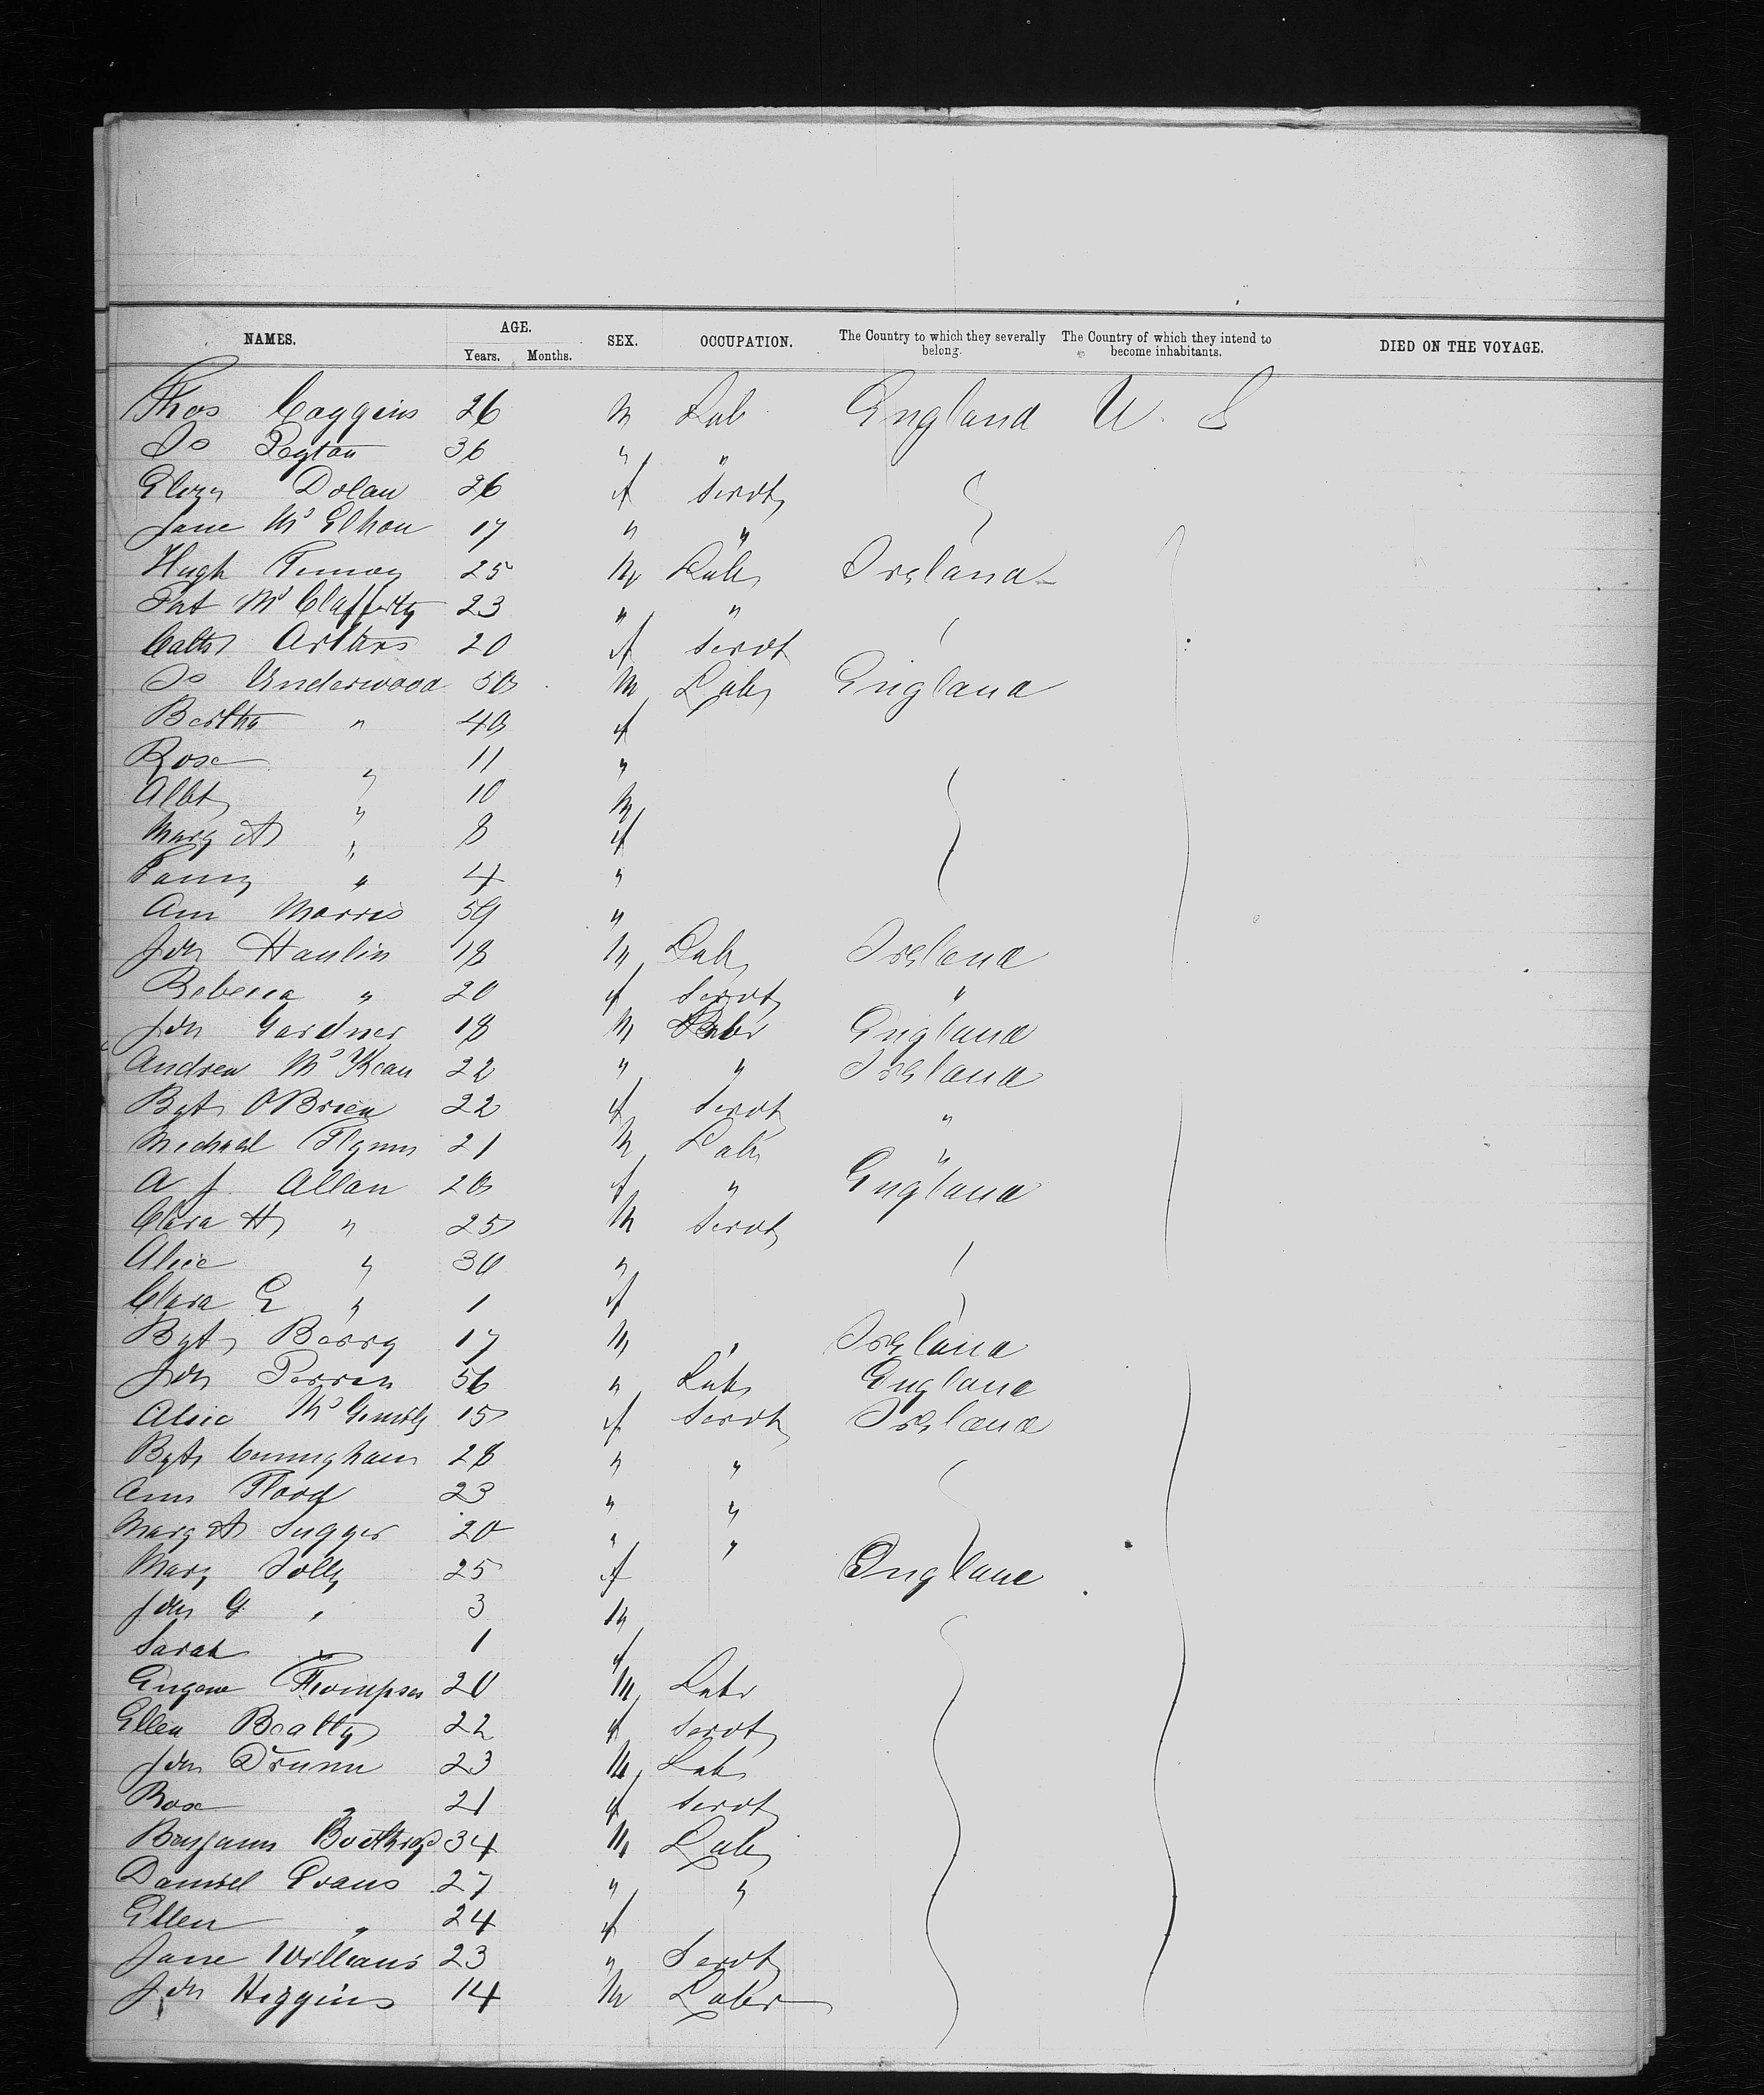 NAMES. AGE. Years. Months. SEX. OCCUPATION. The Country to which they severally belong. The Country of which they intend to become inhabitants. DIED ON THE VOYAGE.
Thos Coggins 26 M Lab England U. S
Jo Peyton 36 " "
Dolan 26 f Servt
Jane 17 " "
Hugh 25 M Lab Ireland
Pat McClafferty 23 " "
Cath 20 f Servt
Jo Underwood 50 M Lab England
Bertha " 40 f
Rose " 11 "
Albt " 10 M
Mary A " 8 f
Fanny " 4 "
Ann Morris 59 "
Jon Hanlin 18 M Lab Ireland
Rebecca " 20 f Servt "
Jon Gardner 18 M Labr England
Andrew McKean 22 " " Ireland
Bgt OBrien 22 f Servt "
Michael Flynn 21 M Lab "
A J Allan 20 f " England
Clara H " 25 M Servt
Alice " 30 "
Clara E " 1 f
Bgt Berry 17 M " Ireland
Jon Perren 56 " Lab England
Alice 15 f Servt Ireland
Bgt Cunningham 28 " "
Ann Flood 23 " "
Mary A 20 " "
Mary Jolly 25 f England
Jon G " 3 M
Sarah " 1 f
Eugene Thompson 20 M Labr
Ellen Beatty 22 f Servt
Jon Drumm 23 M Lab
Rose " 21 f Servt
Benjamin 34 M Lab
Daniel Evans 27 " "
Ellen " 24 f
Jane Williams 23 " Servt
Jon Higgins 14 M Labr